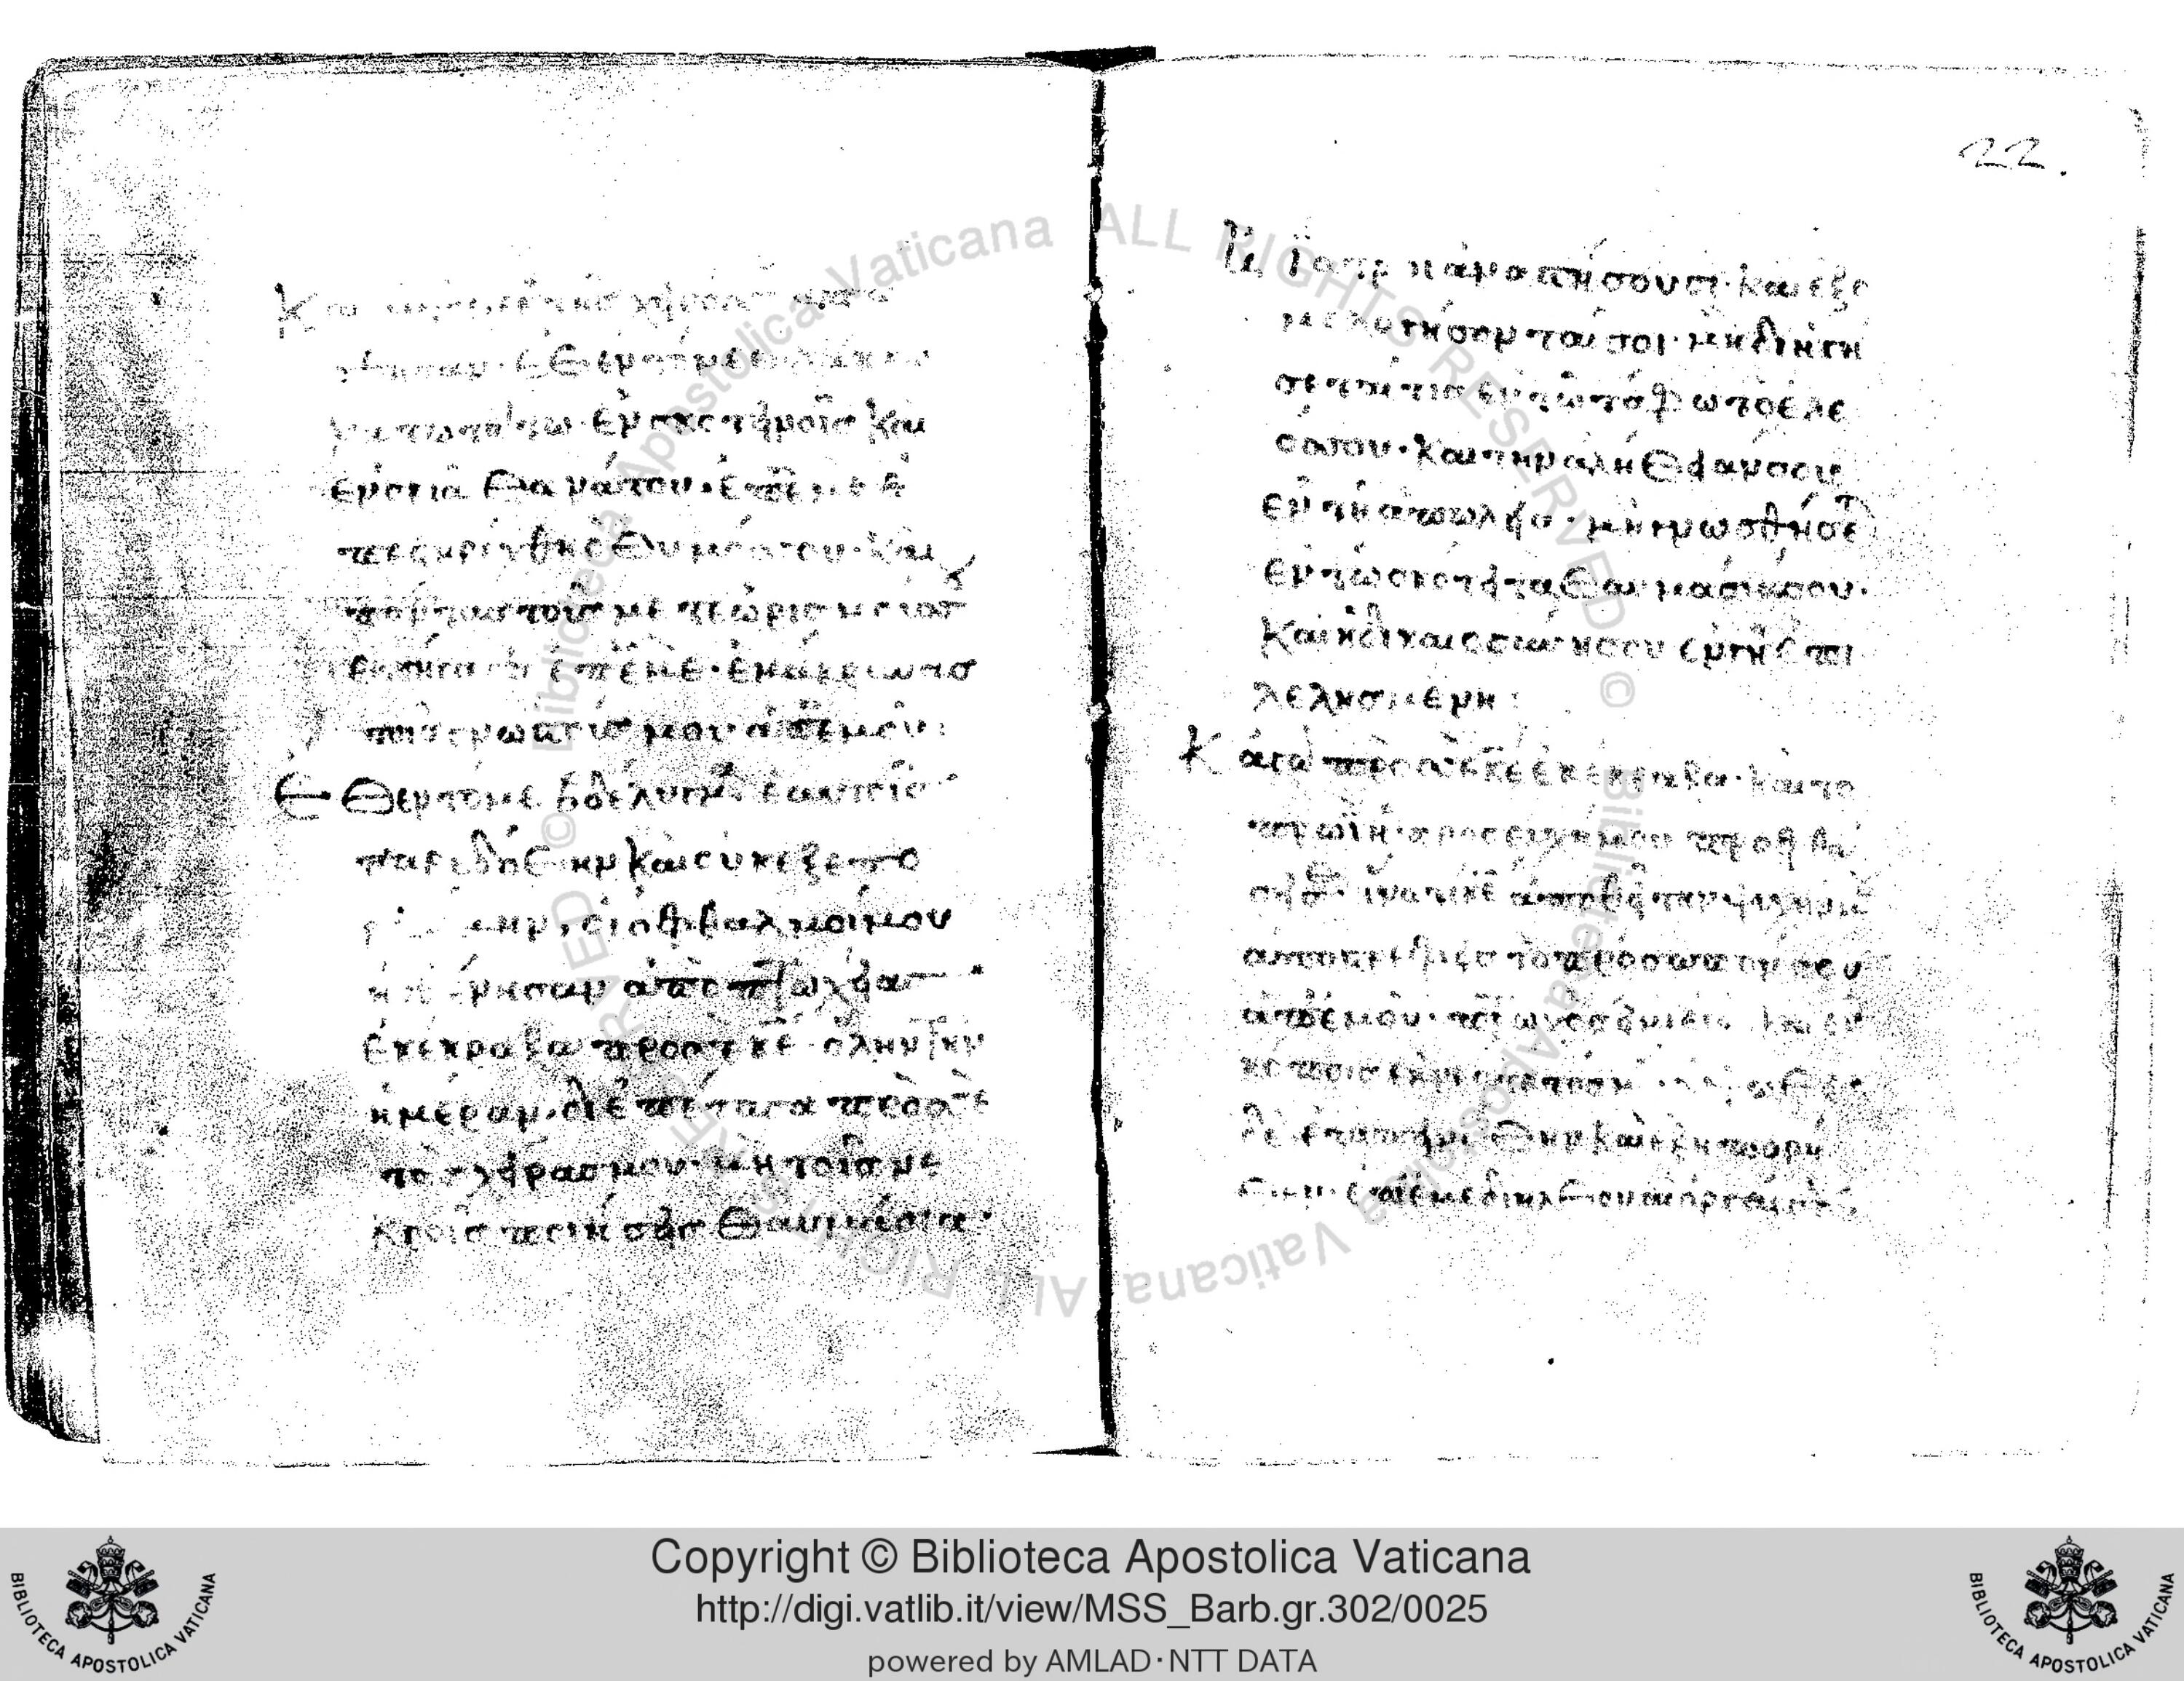 Και αυτοὶ ἐκ τῆς χειρός σου ἀπώ
σθησαν· ἔθεντό με ἐν λάκκω
κατωτάτω· ἐν σκοτεινοῖς καὶ
ἐν σκιᾶ θανάτου· ἐπ ἐμὲ ἐ
πεστηρίχθη ὁ θυμός σου· καὶ
ἐπ ἐμὲ· ἐμάκρυνας
τοὺς γνωστούς μου ἀπ ἐμοῦ:
Ἔθεντό με βδέλυγμα ἑαυτοῖς·
παρεδόθην καὶ οὐκ ἐξεπο
οἱ ὀφθαλμοί μου
ἠσθένησαν ἀπὸ πτωχείας·
ἐκέκραξα πρὸς σὲ κε ὅλην τὴν
ἡμέραν· διεπέτασα πρὸς σὲ
τὰς χεῖρας μου· μὴ τοῖς νε
κροῖς ποιήσεις θαυμάσια·
22.
Ἢ ἰατρ οὶ ἀναστήσουσι· καὶ ἐξο
μολογήσονταί σοι· μὴ διηγή
σεταί τις ἐν τῶ τάφω τὸ ἔλε
ός σου· καὶ τὴν ἀλήθειαν σου
ἐν τῆ ἀπωλεία· μὴ γνωσθήσε
ἐν τῶ σκότει τὰ θαυμάσιά σου·
καὶ ἡ δικαιοσύνη σου ἐν γῆ ἐπι
λελησμένη:
Κἀγὼ πρὸς σὲ κε ἐκέκραξα· καὶ το
πρωῒ ἡ προσευχή μου προφθά
σει σε· ἵνα τί κε ἀπωθεῖ τὴν ψυχήν μου
ἀποστρέφεις τὸ πρόσωπόν σου
ἀπ ἐμοῦ· πτωχός εἰμι ἐγὼ καὶ ἐν
κόποις ἐκ νεότητός μου ὑψωθεὶς
δὲ ἐταπεινώθην καὶ ἐξηπορή
θην· ἐπ ἐμὲ διῆλθον αἱ ὀργαί σου:
Copyright © Biblioteca Apostolica Vaticana
http://digi.vatlib.it/view/MSS_Barb.gr.302/0025
powered by AMLAD·NTT DATA
BIBLIOTECA APOSTOLICA VATICANA
BIBLIOTECA APOSTOLICA VATICANA
Biblioteca Apostolica Vaticana ALL RIGHTS RESERVED ©